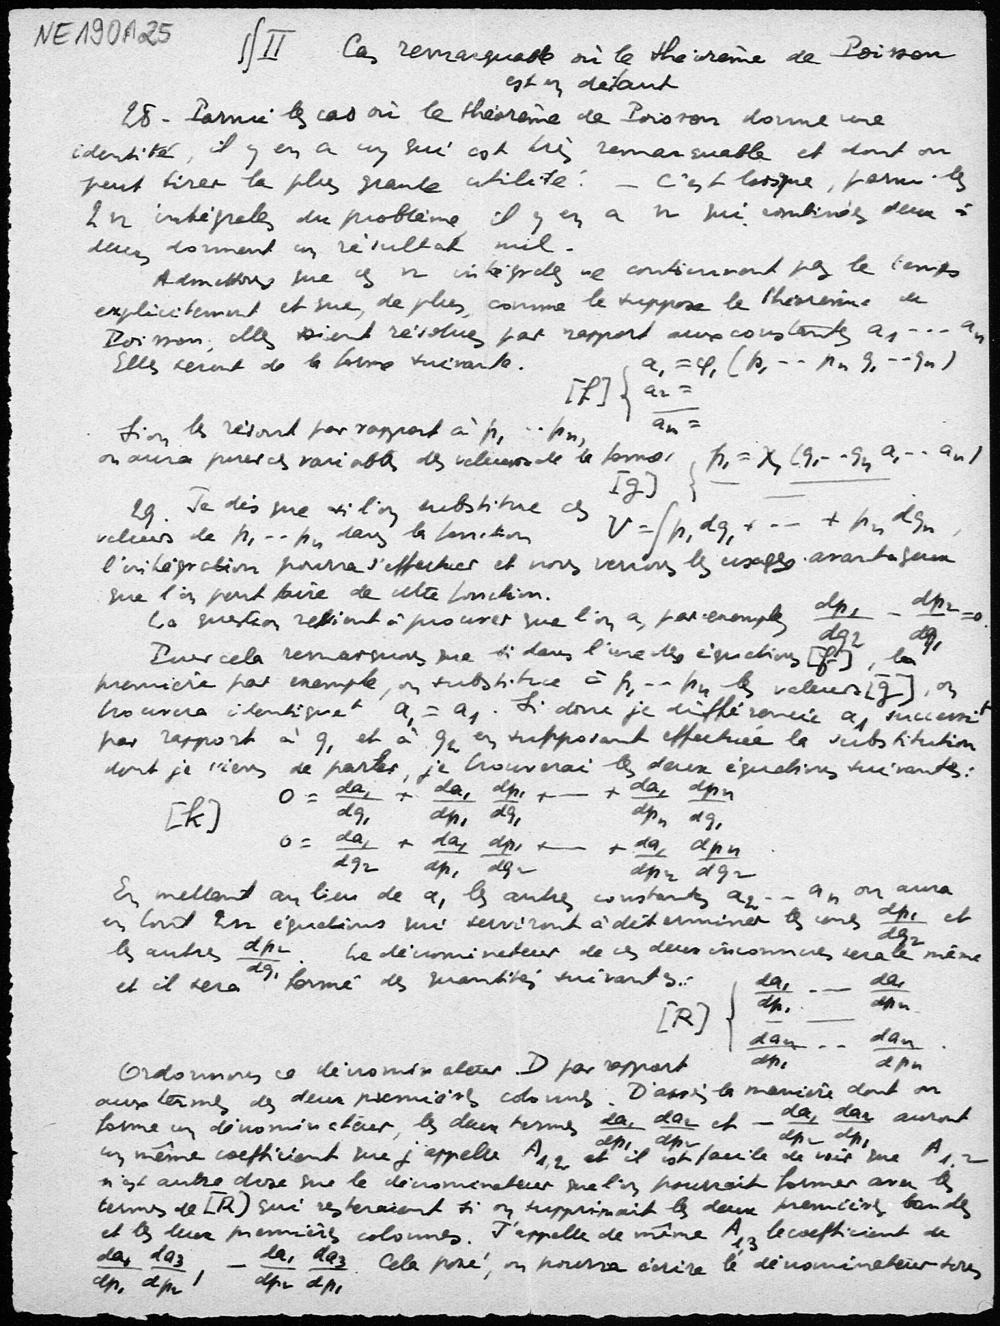 NE190A25
∬ II Cas remarquable où le théorème de Poisson
est en défaut
28 - Parmi les cas où le théorème de Poisson donne une
identité, il y en a un qui est très remarquable et dont on
peut tirer la plus grande utilité. - C'est lorsque, parmi les
2n intégrales du problème, il y en a n qui combinées deux à
deux donnent un résultat nul.
Admettons que ces n intégrales ne contiennent pas le temps
explicitement et que, de plus, comme le suppose le théorème de
Poisson, elles soient résolues par rapport aux constantes a₁ --- aₙ
Elles seront de la forme suivante.
a₁ = φ₁ (p₁ -- pₙ q₁ -- qₙ)
[f] { a₂ =
aₙ =
Si on les résout par rapport à p₁ -- pₙ,
on aura pour ces variables des valeurs de la forme:
[g] { p₁ = χ₁ (q₁ -- qₙ a₁ -- aₙ)
29. Je dis que si l'on substitue ces
valeurs de p₁ -- pₙ dans la fonction V = ∫ p₁ dq₁ + --- + pₙ dqₙ,
l'intégration pourra s'effectuer et nous verrons les usages avantageux
que l'on peut faire de cette fonction.
La question revient à prouver que l'on a, par exemple, dp₁/dq₂ - dp₂/dq₁ = 0.
Pour cela remarquons que si dans l'une des équations [f], la
première par exemple, on substitue à p₁ -- pₙ les valeurs [g], on
trouvera identiqueᵗ a₁ = a₁. Si donc je différencie a₁ successivᵗ
par rapport à q₁ et à q₂ en supposant effectuée la substitution
dont je viens de parler, je trouverai les deux équations suivantes:
[k] 0 = da₁/dq₁ + da₁/dp₁ dp₁/dq₁ + --- + da₁/dpₙ dpₙ/dq₁
0 = da₁/dq₂ + da₁/dp₁ dp₁/dq₂ + --- + da₁/dpₙ dpₙ/dq₂
En mettant au lieu de a₁ les autres constantes a₂ -- aₙ on aura
en tout 2n équations qui serviront à déterminer les unes dp₁/dq₂ et
les autres dp₂/dq₁. Le dénominateur de ces deux inconnues sera le même
et il sera formé des quantités suivantes:
[R] { da₁/dp₁ --- da₁/dpₙ
daₙ/dp₁ -- daₙ/dpₙ.
Ordonnons ce dénominateur D par rapport
aux termes des deux premières colonnes. D'après la manière dont on
forme un dénominateur, les deux termes da₁/dp₁ da₂/dp₂ et - da₁/dp₂ da₂/dp₁ auront
un même coefficient que j'appelle A₁,₂ et il est facile de voir que A₁,₂
n'est autre chose que le dénominateur que l'on pourrait former avec les
termes de [R] qui resteraient si on supprimait les deux premières bandes
et les deux premières colonnes. J'appelle de même A₁,₃ le coefficient de
da₁/dp₁ da₃/dp₂, - da₁/dp₂ da₃/dp₁. Cela posé, on pourra écrire le dénominateur sous